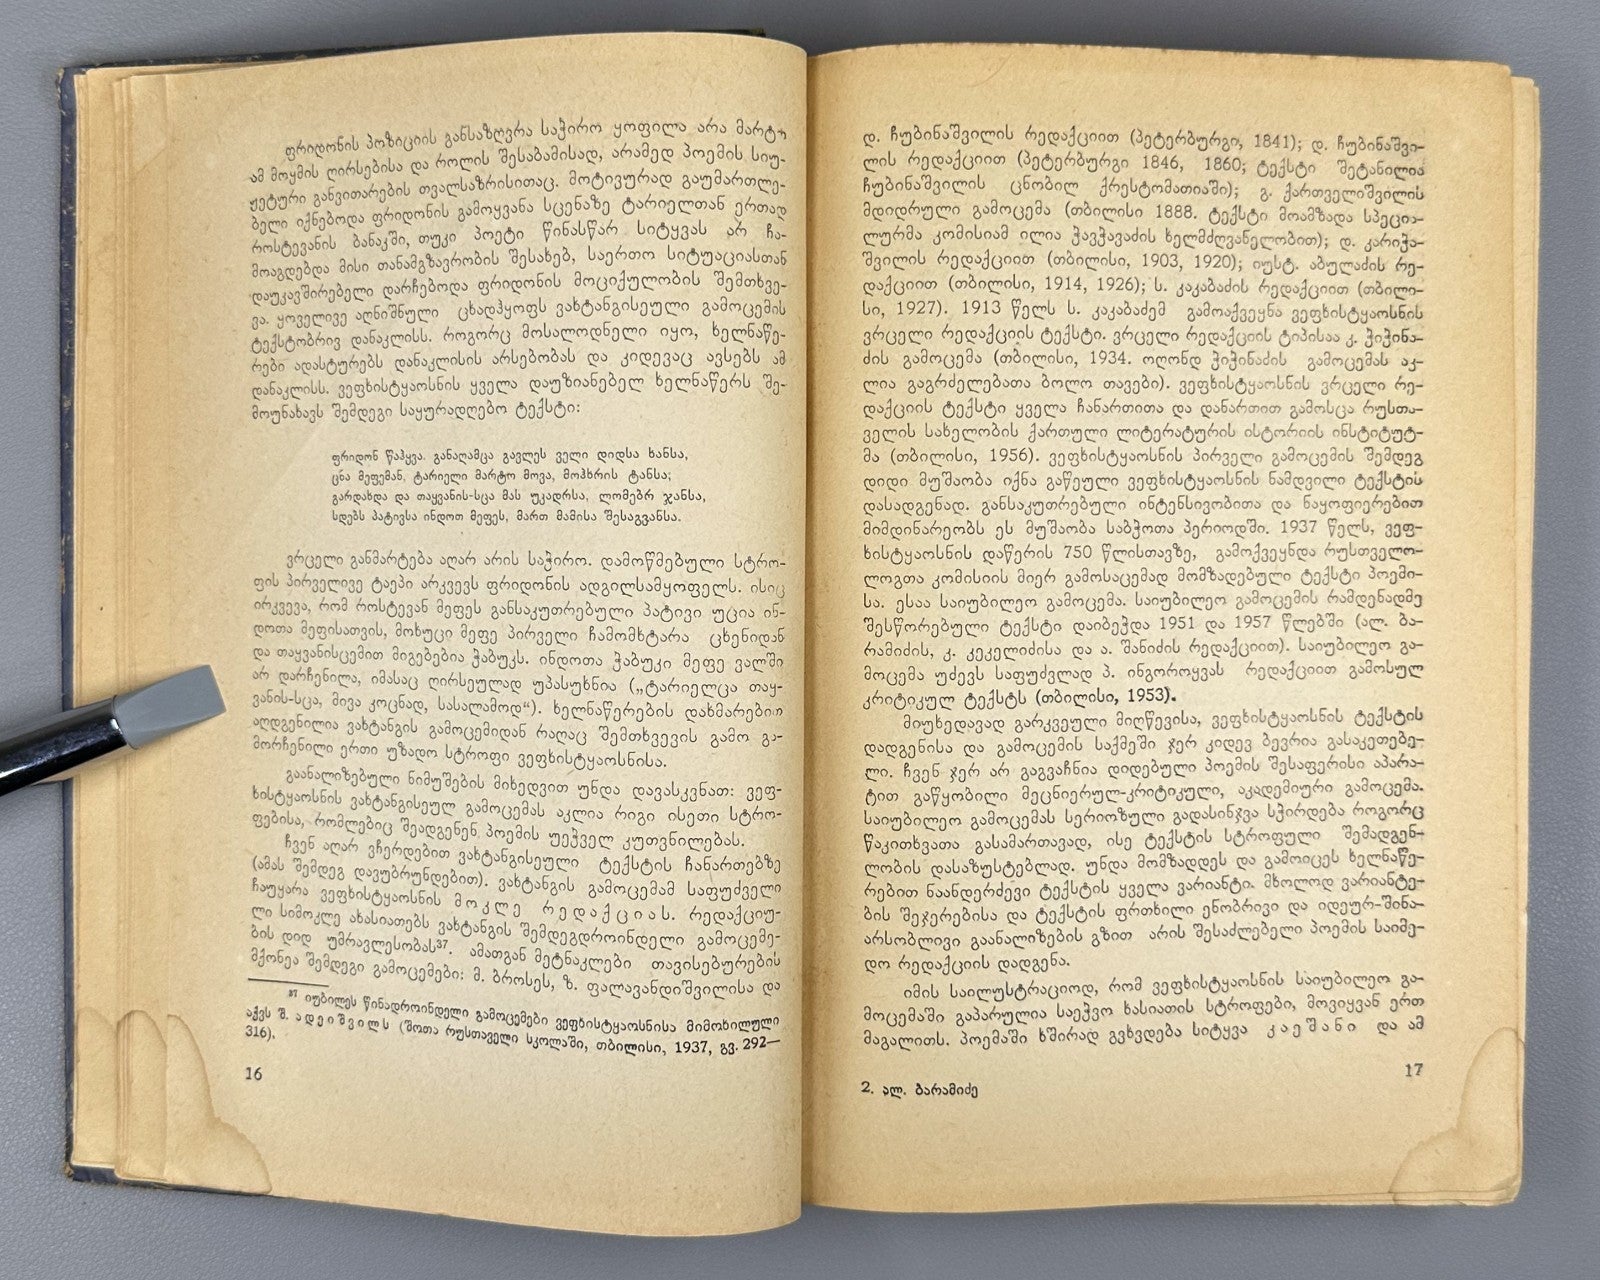 ფრიდონის პოზიციის განსაზღვრა საჭირო ყოფილა არა მარტო
ამ მოყმის ღირსებისა და როლის შესაბამისად, არამედ პოემის სიუ-
ჟეტური განვითარების თვალსაზრისითაც. მოტივურად გაუმართლე-
ბელი იქნებოდა ფრიდონის გამოყვანა სცენაზე ტარიელთან ერთად
როსტევანის ბანაკში, თუკი პოეტი წინასწარ სიტყვას არ ჩა-
მოაგდებდა მისი თანამგზავრობის შესახებ, საერთო სიტუაციასთან
დაუკავშირებელი დარჩებოდა ფრიდონის მოციქულობის შემთხვე-
ვა. ყოველივე აღნიშნული ცხადჰყოფს ვახტანგისეული გამოცემის
ტექსტობრივ დანაკლისს. როგორც მოსალოდნელი იყო, ხელნაწე-
რები ადასტურებს დანაკლისის არსებობას და კიდევაც ავსებს ამ
დანაკლისს. ვეფხისტყაოსნის ყველა დაუზიანებელ ხელნაწერს შე-
მოუნახავს შემდეგი საყურადღებო ტექსტი:
ფრიდონ წაჰყვა. განაღამცა გავლეს ველი დიდსა ხანსა,
ცნა მეფემან, ტარიელი მარტო მოვა, მოჰხრის ტანსა;
გარდახდა და თაყვანის-სცა მას უკადრსა, ლომებრ ჯანსა,
სდებს პატივსა ინდოთ მეფეს, მართ მამისა შესაგვანსა.
ვრცელი განმარტება აღარ არის საჭირო. დამოწმებული სტრო-
ფის პირველივე ტაეპი არკვევს ფრიდონის ადგილსამყოფელს. ისიც
ირკვევა, რომ როსტევან მეფეს განსაკუთრებული პატივი უცია ინ-
დოთა მეფისათვის, მოხუცი მეფე პირველი ჩამომხტარა ცხენიდან
და თაყვანისცემით მიგებებია ჭაბუკს. ინდოთა ჭაბუკი მეფე ვალში
არ დარჩენილა, იმასაც ღირსეულად უპასუხნია („ტარიელცა თაყ-
ვანის-სცა, მივა კოცნად, სასალამოდ“). ხელნაწერების დახმარებით
აღდგენილია ვახტანგის გამოცემიდან რაღაც შემთხვევის გამო გა-
მორჩენილი ერთი უზადო სტროფი ვეფხისტყაოსნისა.
გაანალიზებული ნიმუშების მიხედვით უნდა დავასკვნათ: ვეფ-
ხისტყაოსნის ვახტანგისეულ გამოცემას აკლია რიგი ისეთი სტრო-
ფებისა, რომლებიც შეადგენენ პოემის უეჭველ კუთვნილებას.
ჩვენ აღარ ვჩერდებით ვახტანგისეული ტექსტის ჩანართებზე
(ამას შემდეგ დავუბრუნდებით). ვახტანგის გამოცემამ საფუძველი
ჩაუყარა ვეფხისტყაოსნის მოკლე რედაქციას. რედაქციუ-
ლი სიმოკლე ახასიათებს ვახტანგის შემდეგდროინდელი გამოცემე-
ბის დიდ უმრავლესობას³⁷. ამათგან მეტნაკლები თავისებურების
მქონეა შემდეგი გამოცემები: მ. ბროსეს, ზ. ფალავანდიშვილისა და
³⁷ იუბილეს წინადროინდელი გამოცემები ვეფხისტყაოსნისა მიმოხილული
აქვს შ. ადეიშვილს (შოთა რუსთაველი სკოლაში, თბილისი, 1937, გვ. 292—
316).
16
დ. ჩუბინაშვილის რედაქციით (პეტერბურგი, 1841); დ. ჩუბინაშვი-
ლის რედაქციით (პეტერბურგი 1846, 1860; ტექსტი შეტანილია
ჩუბინაშვილის ცნობილ ქრესტომათიაში); გ. ქართველიშვილის
მდიდრული გამოცემა (თბილისი 1888. ტექსტი მოამზადა სპეცია-
ლურმა კომისიამ ილია ჭავჭავაძის ხელმძღვანელობით); დ. კარიჭა-
შვილის რედაქციით (თბილისი, 1903, 1920); იუსტ. აბულაძის რე-
დაქციით (თბილისი, 1914, 1926); ს. კაკაბაძის რედაქციით (თბილი-
სი, 1927). 1913 წელს ს. კაკაბაძემ გამოაქვეყნა ვეფხისტყაოსნის
ვრცელი რედაქციის ტექსტი. ვრცელი რედაქციის ტიპისაა კ. ჭიჭინა-
ძის გამოცემა (თბილისი, 1934. ოღონდ ჭიჭინაძის გამოცემას აკ-
ლია გაგრძელებათა ბოლო თავები). ვეფხისტყაოსნის ვრცელი რე-
დაქციის ტექსტი ყველა ჩანართითა და დანართით გამოსცა რუსთა-
ველის სახელობის ქართული ლიტერატურის ისტორიის ინსტიტუტ-
მა (თბილისი, 1956). ვეფხისტყაოსნის პირველი გამოცემის შემდეგ
დიდი მუშაობა იქნა გაწეული ვეფხისტყაოსნის ნამდვილი ტექსტის
დასადგენად. განსაკუთრებული ინტენსივობითა და ნაყოფიერებით
მიმდინარეობს ეს მუშაობა საბჭოთა პერიოდში. 1937 წელს, ვეფ-
ხისტყაოსნის დაწერის 750 წლისთავზე, გამოქვეყნდა რუსთველო-
ლოგთა კომისიის მიერ გამოსაცემად მომზადებული ტექსტი პოემი-
სა. ესაა საიუბილეო გამოცემა. საიუბილეო გამოცემის რამდენადმე
შესწორებული ტექსტი დაიბეჭდა 1951 და 1957 წლებში (ალ. ბა-
რამიძის, კ. კეკელიძისა და ა. შანიძის რედაქციით). საიუბილეო გა-
მოცემა უძევს საფუძვლად პ. ინგოროყვას რედაქციით გამოსულ
კრიტიკულ ტექსტს (თბილისი, 1953).
მიუხედავად გარკვეული მიღწევისა, ვეფხისტყაოსნის ტექსტის
დადგენისა და გამოცემის საქმეში ჯერ კიდევ ბევრია გასაკეთებე-
ლი. ჩვენ ჯერ არ გაგვაჩნია დიდებული პოემის შესაფერისი აპარა-
ტით გაწყობილი მეცნიერულ-კრიტიკული, აკადემიური გამოცემა.
საიუბილეო გამოცემას სერიოზული გადასინჯვა სჭირდება როგორც
წაკითხვათა გასამართავად, ისე ტექსტის სტროფული შემადგენ-
ლობის დასაზუსტებლად. უნდა მომზადდეს და გამოიცეს ხელნაწე-
რებით ნაანდერძევი ტექსტის ყველა ვარიანტი. მხოლოდ ვარიანტე-
ბის შეჯერებისა და ტექსტის ფრთხილი ენობრივი და იდეურ-შინა-
არსობლივი გაანალიზების გზით არის შესაძლებელი პოემის საიმე-
დო რედაქციის დადგენა.
იმის საილუსტრაციოდ, რომ ვეფხისტყაოსნის საიუბილეო გა-
მოცემაში გაპარულია საეჭვო ხასიათის სტროფები, მოვიყვან ერთ
მაგალითს. პოემაში ხშირად გვხვდება სიტყვა კაეშანი და ამ
2. ალ. ბარამიძე
17